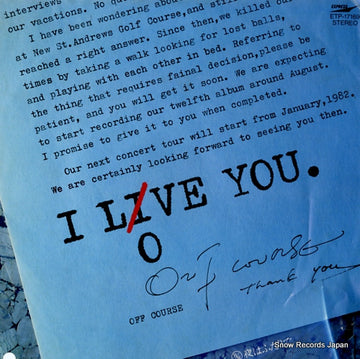 interviews
EXPRESS
ETP-17161
STEREO
our vacations. No
I have been wondering about
at New St.Andrews Golf Course, and still
reached a right answer. Since then, we killed our
times by taking a walk looking for lost balls,
and playing with each other in bed. Referring to
the thing that requires fainal decision, please be
patient, and you will get it soon. We are expecting
to start recording our twelfth album around August.
I promise to give it to you when completed.
Our next concert tour will start from January, 1982.
We are certainly looking forward to seeing you then.
I LIVE YOU.
O
OFF COURSE
THANK YOU
OFF COURSE
©Snow Records Japan